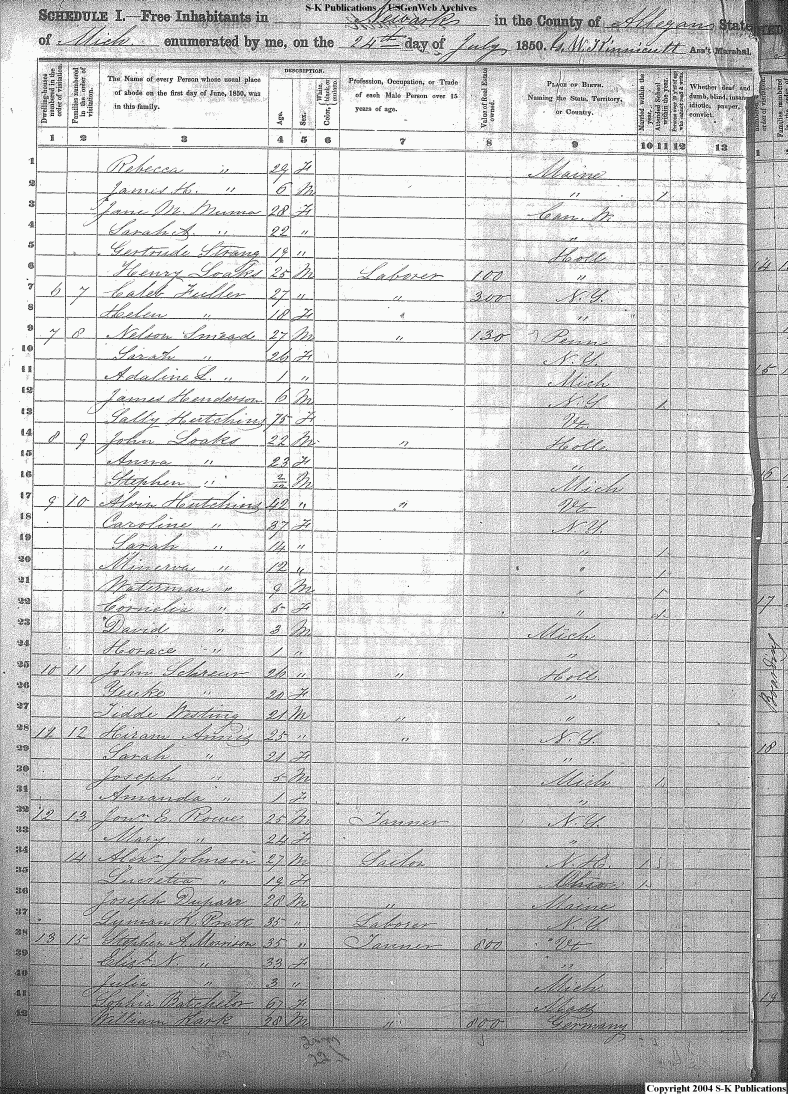 S-K Publications / USGenWeb Archives
SCHEDULE I.—Free Inhabitants in Newark in the County of Allegan State
of Mich enumerated by me, on the 24th day of July 1850. Ass't Marshal.
Dwelling-houses numbered in the order of visitation.
Families numbered in the order of visitation.
The Name of every Person whose usual place of abode on the first day of June, 1850, was in this family.
DESCRIPTION.
Age.
Sex.
Color, White, black, or mulatto.
Profession, Occupation, or Trade of each Male Person over 15 years of age.
Value of Real Estate owned.
PLACE OF BIRTH. Naming the State, Territory, or Country.
Married within the year.
Attended School within the year.
Whether deaf and dumb, blind, insane, idiotic, pauper, or convict.
1 2 3 4 5 6 7 8 9 10 11 12 13
1 Rebecca " 29 F Maine
2 James H. " 6 M " 1
3 Jane M. Muma 28 F Can. W.
4 Sarah A. " 22 " "
5 Gertrude Strang 19 " Holl
6 Henry Loaks 25 M Laborer 100 "
7 6 7 Caleb Fuller 27 " " 300 N.Y.
8 Helen " 18 F "
9 7 8 Nelson Smeade 27 M " 130 Penn
10 Sarah " 26 F N.Y.
11 Adaline L. " 1 " Mich
12 James Henderson 6 M N.Y. 1
13 Sally Hutchins 75 F Vt
14 8 9 John Loaks 22 M " Holl
15 Anna " 23 F "
16 Stephen " 2/12 M Mich
17 9 10 Alvin Hutchins 42 " " Vt
18 Caroline " 37 F N.Y.
19 Sarah " 14 " " 1
20 Minerva " 12 " " 1
21 Waterman " 9 M " 1
22 Cornelia " 5 F " 1
23 David " 3 M Mich
24 Horace " 1 " "
25 10 11 John Schreur 26 " " Holl
26 20 F "
27 Tidde Westing 21 M " "
28 12 12 Hiram Annis 25 " " N.Y.
29 Sarah " 21 F "
30 Joseph " 5 M Mich 1
31 Amanda " 1 F "
32 12 13 Jonn E. Rowe 25 M Tanner N.Y.
33 Mary " 24 F "
34 14 Alexr Johnson 27 M Sailor 1
35 Lucretia " 19 F Ohio 1
36 Joseph 28 M "
37 Lyman H. Pratt 35 " Laborer N.Y.
38 13 15 Stephen A. Morrison 35 " Tanner 800 Vt
39 Elizth N. " 33 F "
40 Julia " 3 " Mich
41 Sophia Batchelor 67 F Mass
42 William Kark 28 M " 800 Germany
14
15
16
17
Boarding
18
19
Copyright 2004 S-K Publications